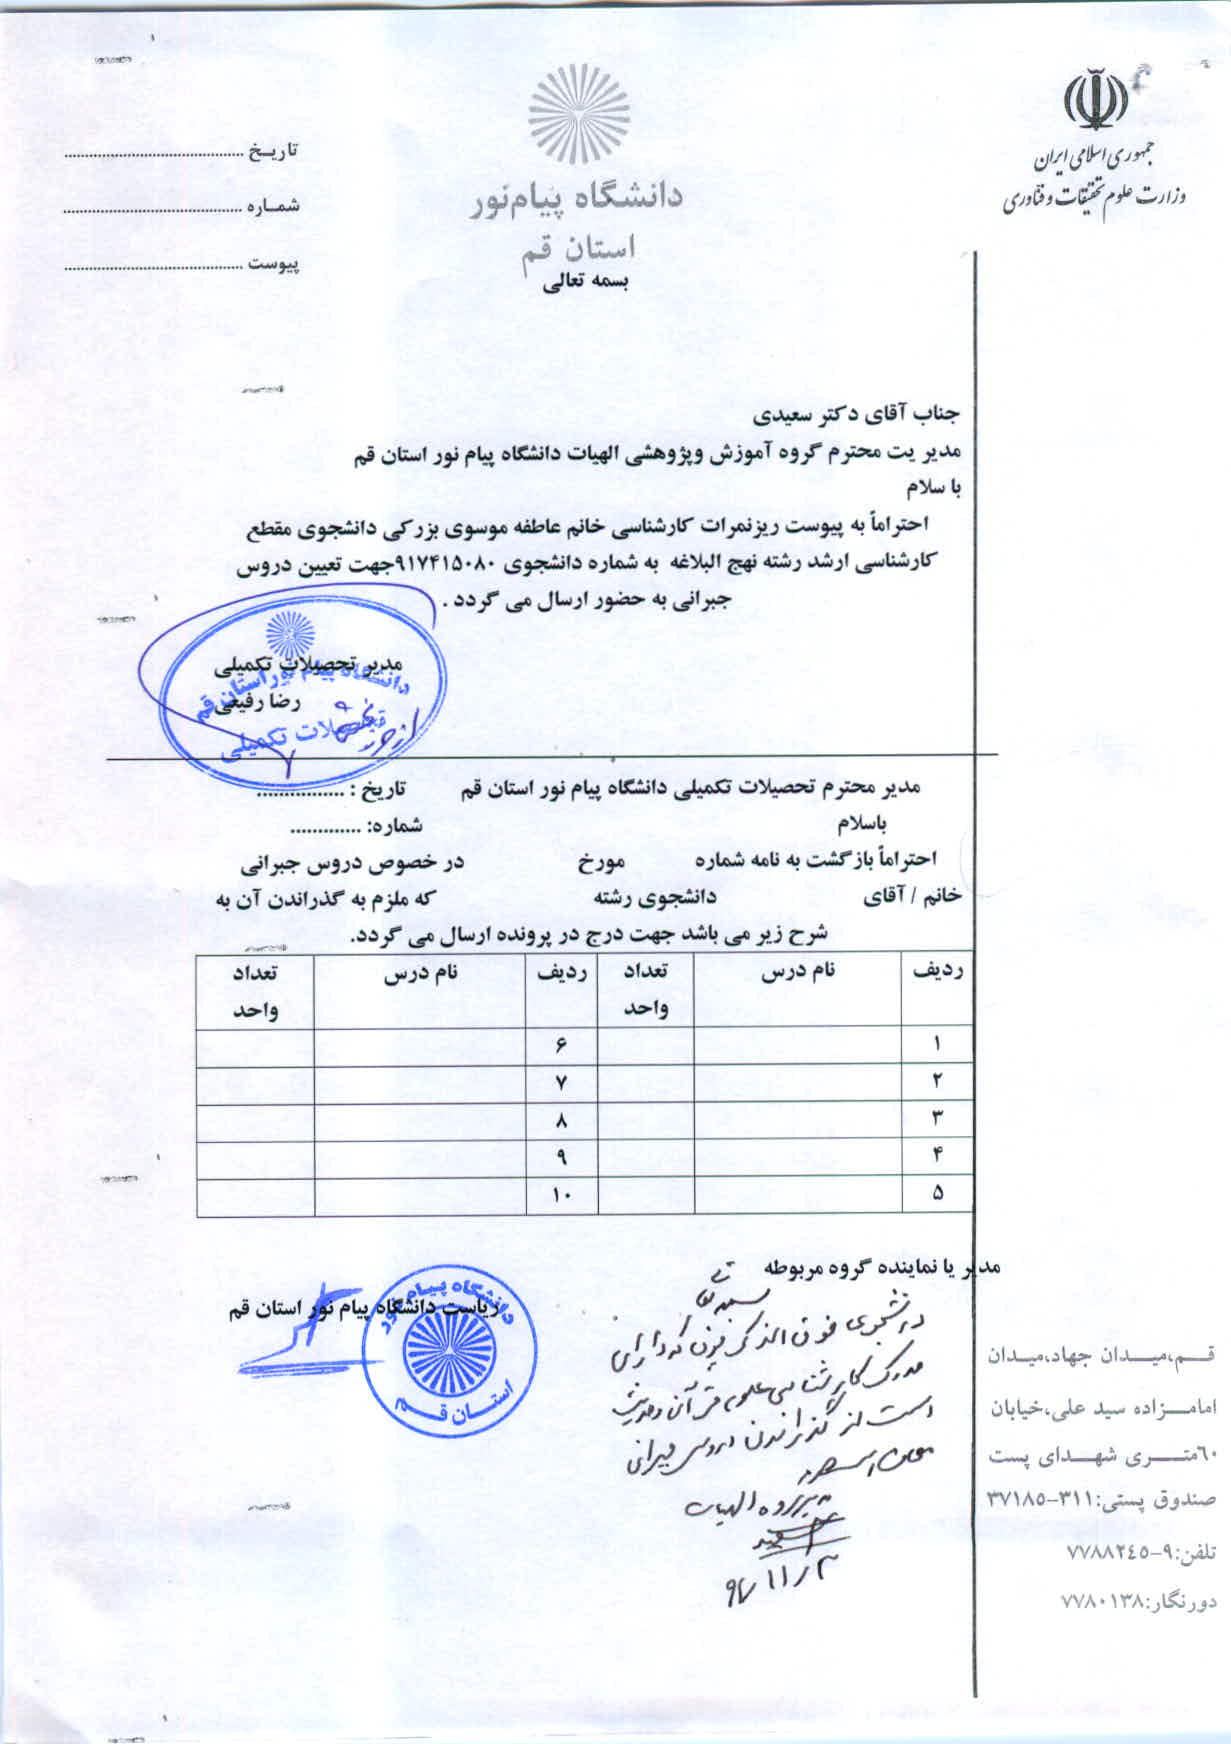 جمهوری اسلامی ایران
وزارت علوم تحقیقات و فناوری
دانشگاه پیام‌نور
استان قم
بسمه تعالی
تاریخ ............
شماره ............
پیوست ............
جناب آقای دکتر سعیدی
مدیر یت محترم گروه آموزش وپژوهشی الهیات دانشگاه پیام نور استان قم
با سلام
احتراماً به پیوست ریزنمرات کارشناسی خانم عاطفه موسوی بزرکی دانشجوی مقطع
کارشناسی ارشد رشته نهج البلاغه به شماره دانشجوی ۹۱۷۴۱۵۰۸۰جهت تعیین دروس
جبرانی به حضور ارسال می گردد .
مدیر تحصیلات تکمیلی
رضا رفیعی
دانشگاه پیام نور استان قم
تحصیلات تکمیلی
مدیر محترم تحصیلات تکمیلی دانشگاه پیام نور استان قم تاریخ : ................
باسلام شماره: .............
احتراماً بازگشت به نامه شماره مورخ در خصوص دروس جبرانی
خانم / آقای دانشجوی رشته که ملزم به گذراندن آن به
شرح زیر می باشد جهت درج در پرونده ارسال می گردد.
ردیف نام درس تعداد واحد ردیف نام درس تعداد واحد
۱ ۶
۲ ۷
۳ ۸
۴ ۹
۵ ۱۰
مدیر یا نماینده گروه مربوطه
ریاست دانشگاه پیام نور استان قم
دانشگاه پیام نور
استان قم
بسمه تعالی
دانشجوی فوق الذکر که دارای
مدرک کارشناسی علوم قرآن و حدیث
است از گذراندن دروس جبرانی
معاف است
مدیر گروه الهیات
۹۲/۱۱/۳
قم،میدان جهاد،میدان
امامزاده سید علی،خیابان
٦٠متری شهدای پست
صندوق پستی:۳۱۱-۳۷۱۸۵
تلفن:۹-۷۷۸۸۲٤۵
دورنگار:۷۷۸۰۱۳۸